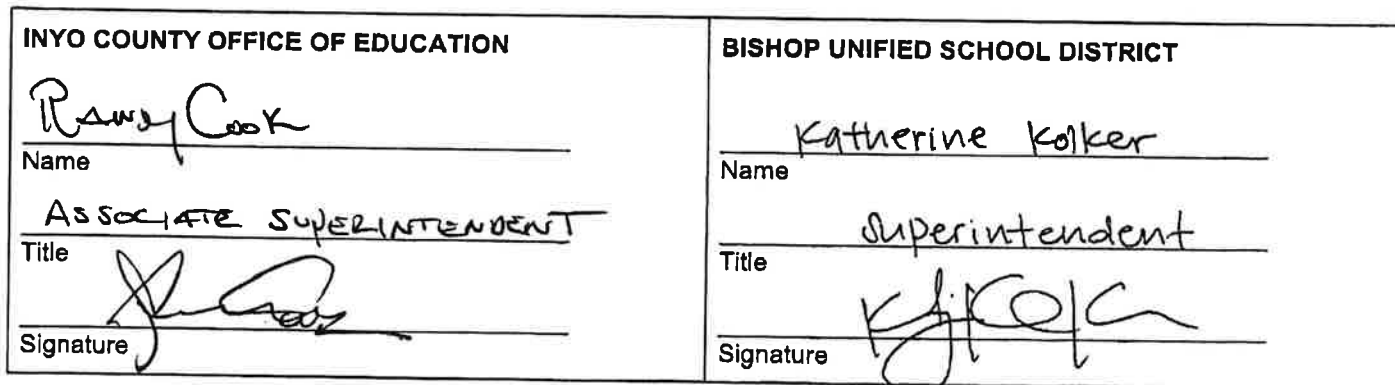 INYO COUNTY OFFICE OF EDUCATION
Randy Cook
Name
ASSOCIATE SUPERINTENDENT
Title
Signature
BISHOP UNIFIED SCHOOL DISTRICT
Katherine Kolker
Name
Superintendent
Title
Signature